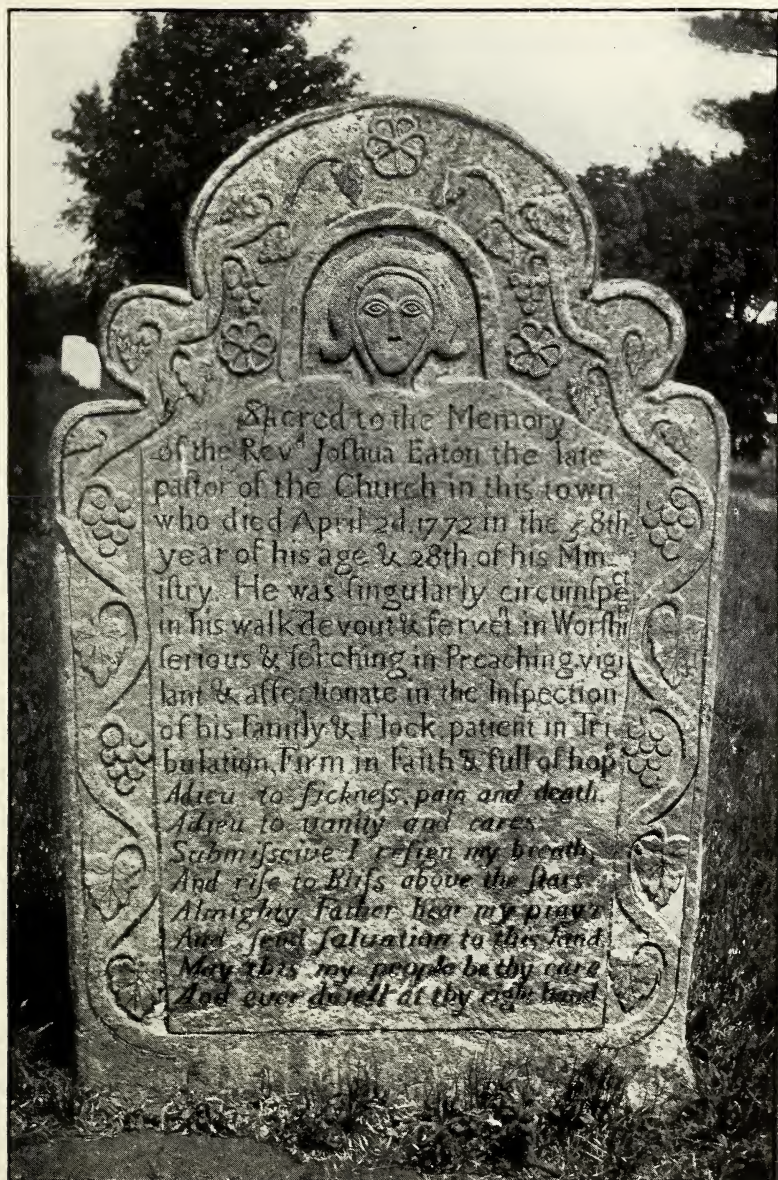 Sacred to the Memory
of the Revᵈ Joſhua Eaton the late
paſtor of the Church in this town
who died April 2d. 1772 in the 58th
year of his age & 28th of his Min-
iſtry. He was ſingularly circumſpect
in his walk devout & fervet in Worſhip
ſerious & ſerching in Preaching, vigi
lant & affectionate in the Inſpection
of his Family & Flock, patient in Tri
bulation, Firm in Faith & full of hope
Adieu to ſickneſs, pain and death,
Adieu to vanity and cares
Submiſscive I reſign my breath,
And riſe to Bliſs above the ſtars.
Almighty Father hear my pray'r
And ſend ſalvation to this land
May this my people be thy care
And ever dwell at thy right hand